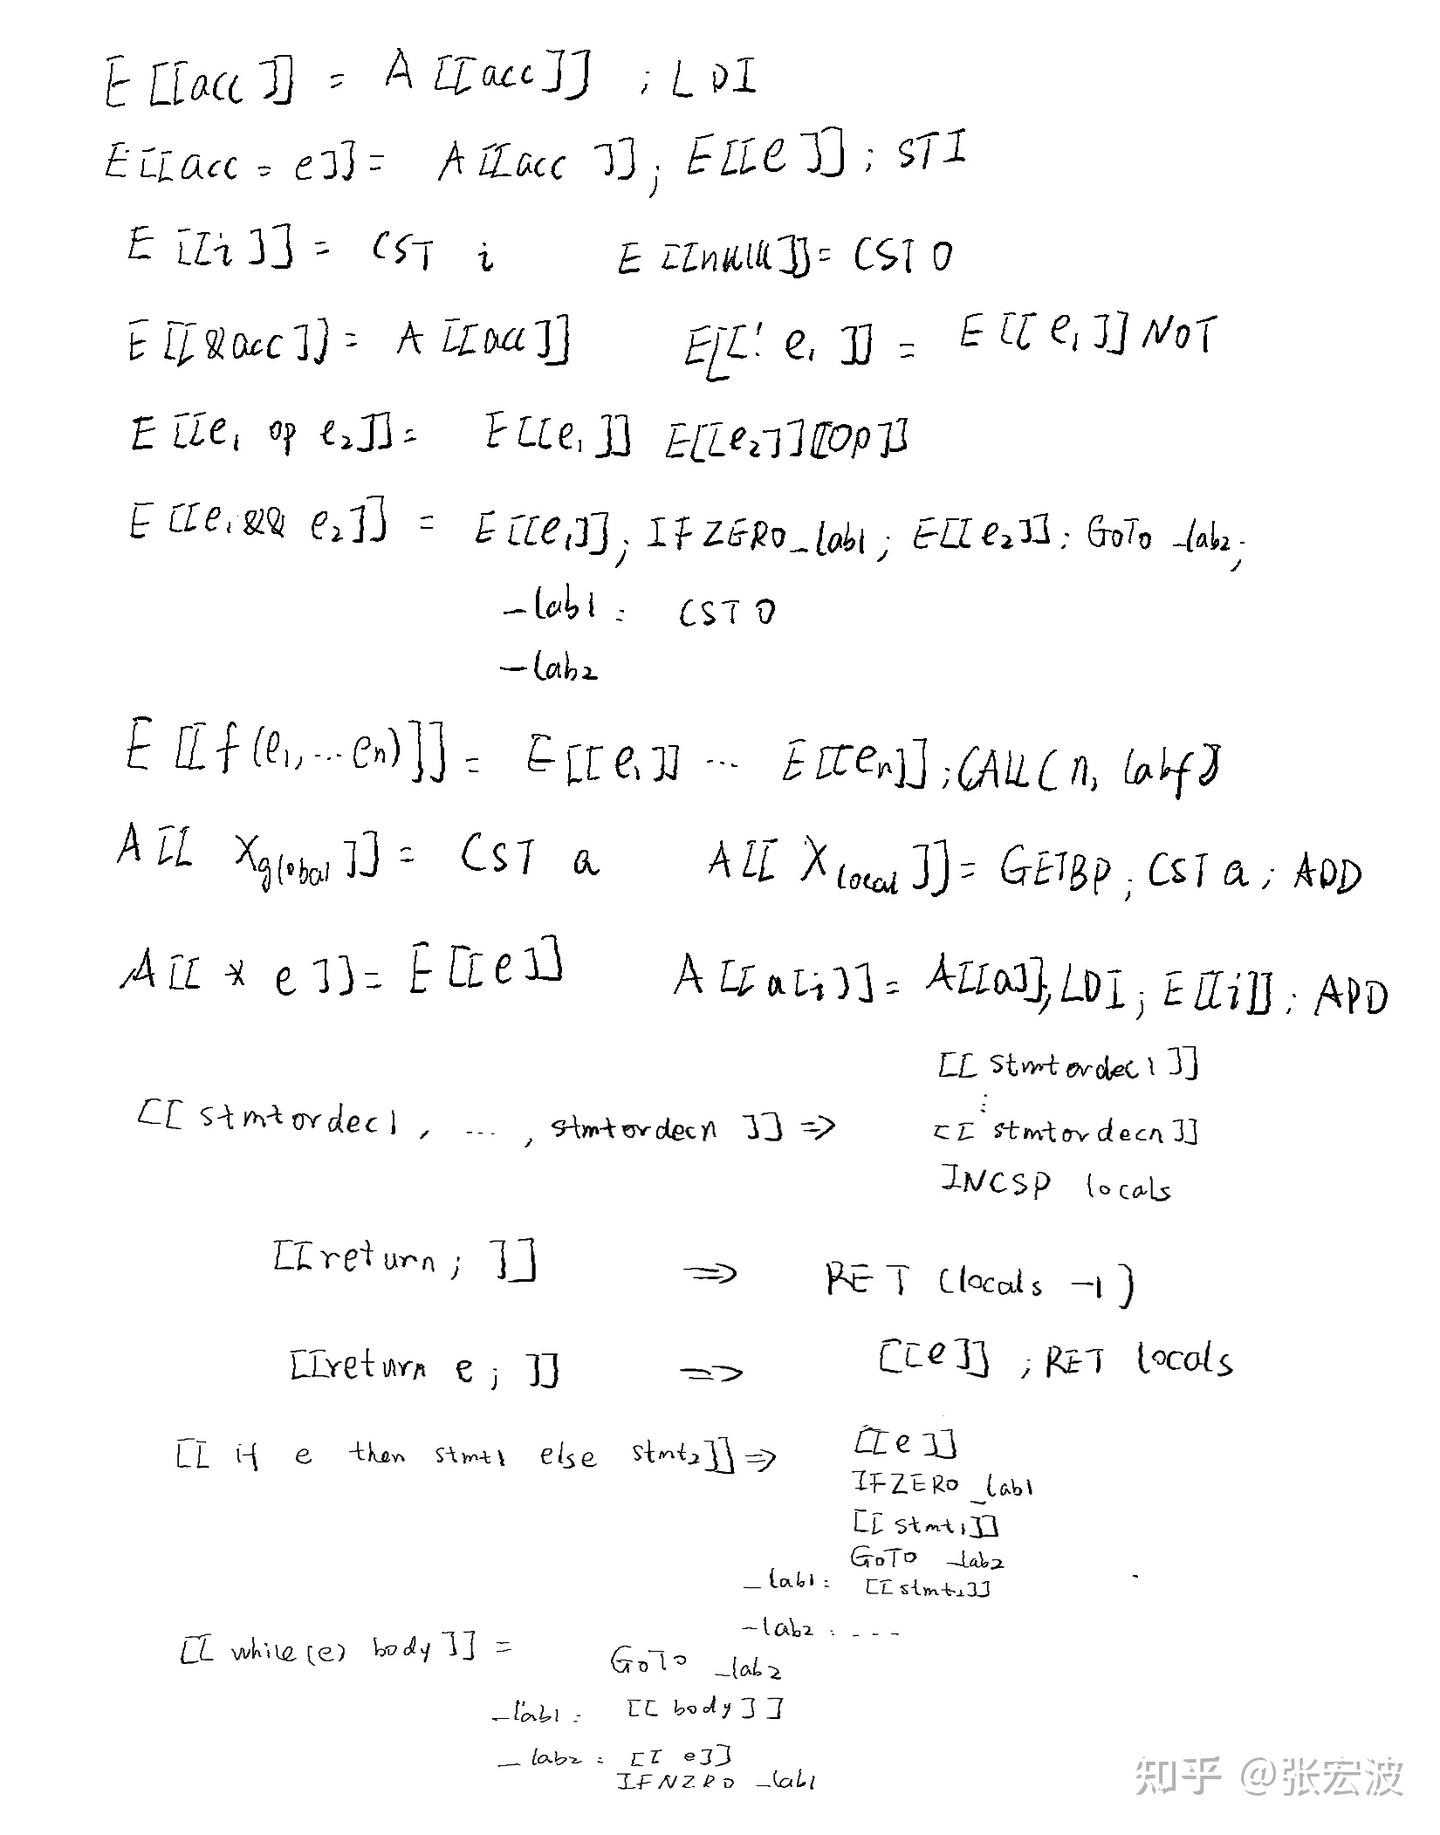 E[[acc]] = A[[acc]] ; LDI
E[[acc = e]] = A[[acc]] ; E[[e]] ; STI
E[[i]] = CST i E[[null]] = CST 0
E[[&acc]] = A[[acc]] E[[! e1]] = E[[e1]] NOT
E[[e1 op e2]] = E[[e1]] E[[e2]] [[op]]
E[[e1 && e2]] = E[[e1]] ; IFZERO _lab1 ; E[[e2]] ; GOTO _lab2 ;
_lab1 : CST 0
_lab2
E[[f(e1, ... en)]] = E[[e1]] ... E[[en]] ; CALL(n, labf)
A[[Xglobal]] = CST a A[[Xlocal]] = GETBP ; CST a ; ADD
A[[* e]] = E[[e]] A[[a[i]] = A[[a]] ; LDI ; E[[i]] ; ADD
[[stmtordec1]]
⋮
[[stmtordec1, ..., stmtordecn]] => [[stmtordecn]]
INCSP locals
[[return ; ]] => RET (locals -1)
[[return e ; ]] => [[e]] ; RET locals
[[if e then stmt1 else stmt2]] => [[e]]
IFZERO _lab1
[[stmt1]]
GOTO _lab2
_lab1 : [[stmt2]]
_lab2 : ...
[[while(e) body]] = GOTO _lab2
_lab1 : [[body]]
_lab2 : [[e]]
IFNZRO _lab1
知乎 @张宏波